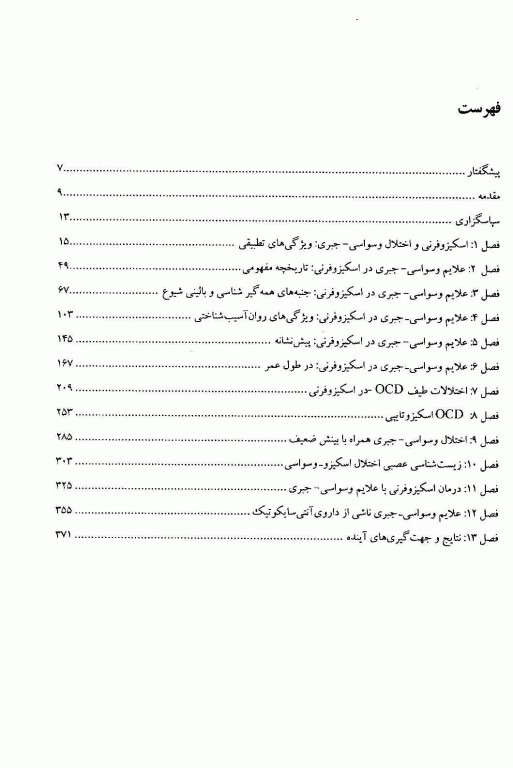 فهرست
پیشگفتار ........ ۷
مقدمه ........ ۹
سپاسگزاری ........ ۱۳
فصل ۱: اسکیزوفرنی و اختلال وسواسی- جبری: ویژگی‌های تطبیقی ........ ۱۵
فصل ۲: علایم وسواسی- جبری در اسکیزوفرنی: تاریخچه مفهومی ........ ۴۹
فصل ۳: علایم وسواسی- جبری در اسکیزوفرنی: جنبه‌های همه‌گیر شناسی و بالینی شیوع ........ ۶۷
فصل ۴: علایم وسواسی-جبری در اسکیزوفرنی: ویژگی‌های روان‌آسیب‌شناختی ........ ۱۰۳
فصل ۵: علایم وسواسی- جبری در اسکیزوفرنی: پیش‌نشانه ........ ۱۴۵
فصل ۶: علایم وسواسی-جبری در اسکیزوفرنی: در طول عمر ........ ۱۶۷
فصل ۷: اختلالات طیف OCD -در اسکیزوفرنی ........ ۲۰۹
فصل ۸: OCD اسکیزوتایپی ........ ۲۵۳
فصل ۹: اختلال وسواسی- جبری همراه با بینش ضعیف ........ ۲۸۵
فصل ۱۰: زیست‌شناسی عصبی اختلال اسکیزو-وسواسی ........ ۳۰۳
فصل ۱۱: درمان اسکیزوفرنی با علایم وسواسی- جبری ........ ۳۲۵
فصل ۱۲: علایم وسواسی-جبری ناشی از داروی آنتی‌سایکوتیک ........ ۳۵۵
فصل ۱۳: نتایج و جهت‌گیری‌های آینده ........ ۳۷۱